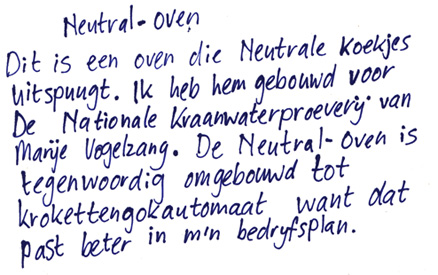 Neutral-oven
Dit is een oven die Neutrale koekjes
uitspuugt. Ik heb hem gebouwd voor
De Nationale Kraanwaterproeverij van
Marije Vogelzang. De Neutral-oven is
tegenwoordig omgebouwd tot
krokettengokautomaat want dat
past beter in m'n bedrijfsplan.